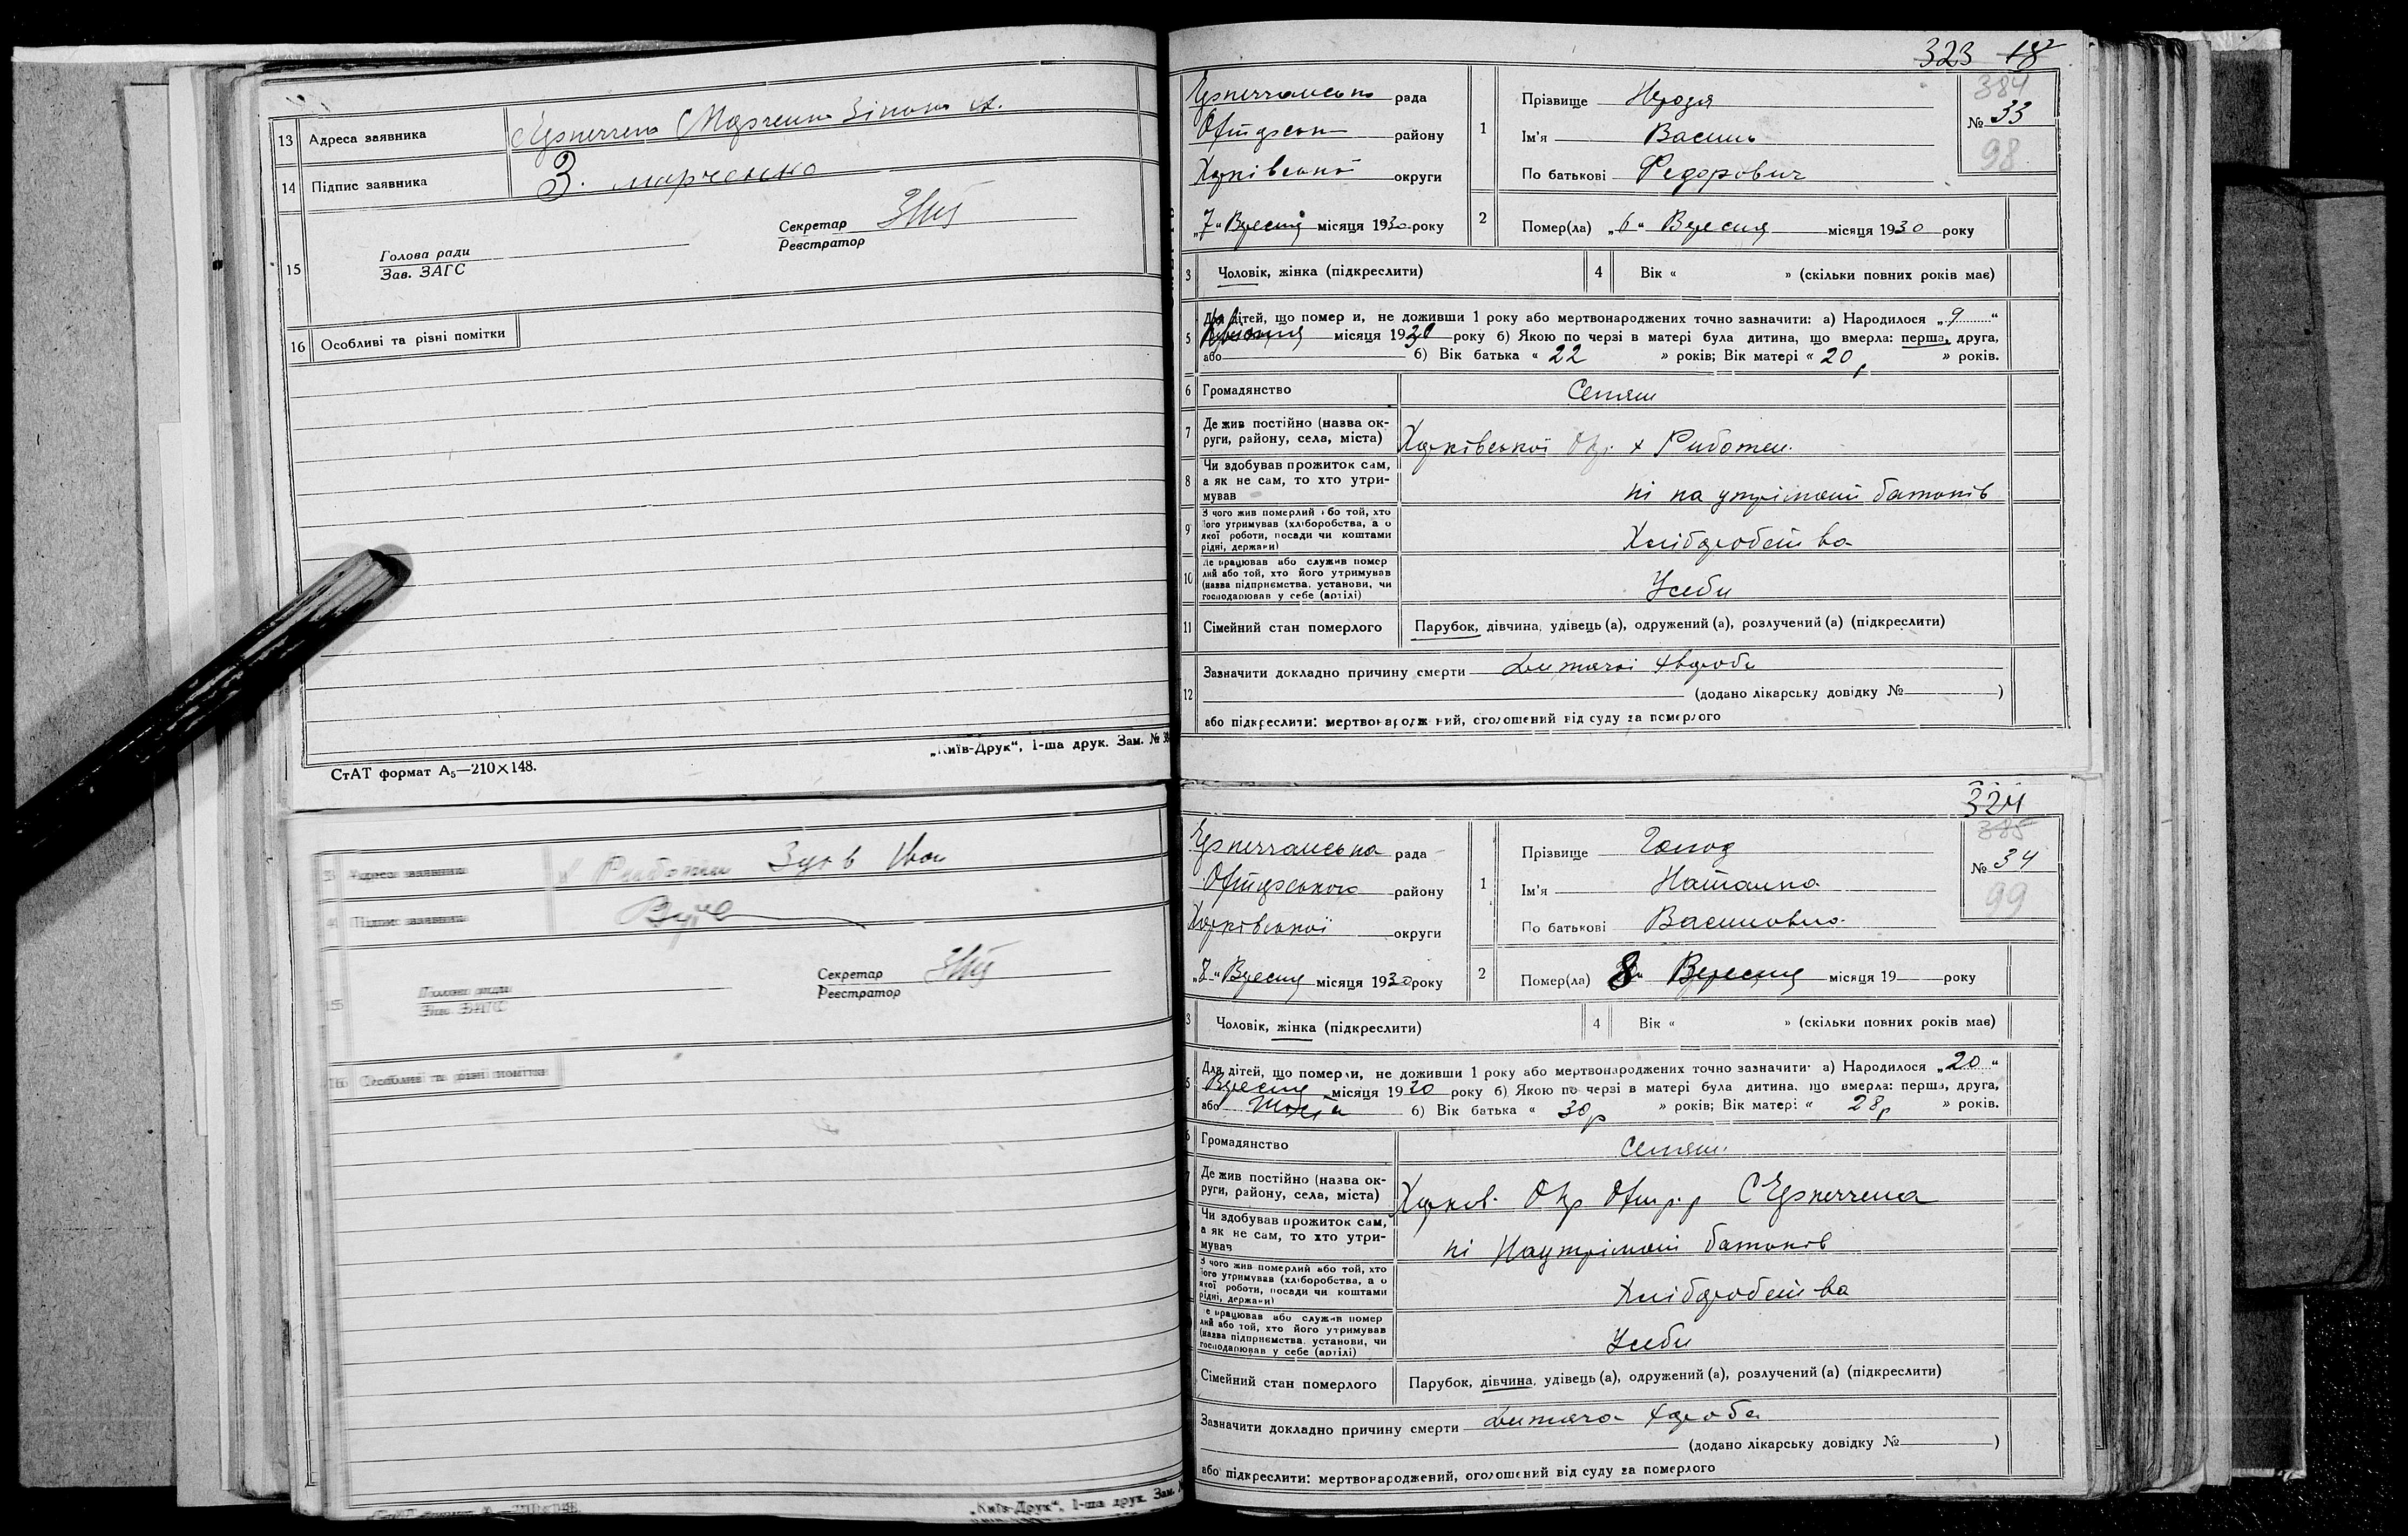 13 Адреса заявника Марченко
14 Підпис заявника З. Марченко
Секретар
Реєстратор
Голова ради
Зав. ЗАГС
15
16 Особливі та різні помітки
„Київ-Друк“, 1-ша друк. Зам. №
СтАТ формат А₅—210×148.
Адреса заявника Зуєв Іван
Підпис заявника
Секретар
Реєстратор
Голова ради
Зав. ЗАГС
Особливі та різні помітки
„Київ-Друк“, 1-ша друк. Зам.
323 18
384
рада
району
Харківської округи
„7“ Вересня місяця 1930 року
1
Прізвище
Ім'я Василь
По батькові Федорович
№ 33
98
2 Помер(ла) „6“ Вересня місяця 1930 року
3 Чоловік, жінка (підкреслити)
4 Вік « » (скільки повних років має)
5 Для дітей, що померли, не доживши 1 року або мертвонароджених точно зазначити: а) Народилося „9“
місяця 1930 року б) Якою по черзі в матері була дитина, що вмерла: перша, друга,
або б) Вік батька « 22 » років; Вік матері « 20 р » років.
6 Громадянство Селян
7 Де жив постійно (назва ок-
руги, району, села, міста) Харківської Окр. х
8 Чи здобував прожиток сам,
а як не сам, то хто утри-
мував ні на утрімані батьків
9 З чого жив померлий або той, хто
його утримував (хліборобства, а о
якої роботи, посади чи коштами
рідні, держави) Хліборобства
10 Де працював або служив помер
лий або той, хто його утримував
(назва підприємства, установи, чи
господарював у себе (артілі) Усеби
11 Сімейний стан померлого Парубок, дівчина, удівець (а), одружений (а), розлучений (а) (підкреслити)
12 Зазначити докладно причину смерти Дитячі хвороби
(додано лікарську довідку № )
або підкреслити: мертвонароджений, оголошений від суду за померлого
324
385
рада
району
Харківської округи
„8“ Вересня місяця 1930 року
1
Прізвище Голод
Ім'я Наталка
По батькові Василовна
№ 34
99
2 Помер(ла) 8“ Вересня місяця 19 року
3 Чоловік, жінка (підкреслити)
4 Вік « » (скільки повних років має)
5 Для дітей, що померли, не доживши 1 року або мертвонароджених точно зазначити: а) Народилося „20“
Вересня місяця 1930 року б) Якою по черзі в матері була дитина, що вмерла: перша, друга,
або б) Вік батька « 30 р » років; Вік матері « 28 р » років.
6 Громадянство Селян
Де жив постійно (назва ок-
руги, району, села, міста) Харков. Окр
Чи здобував прожиток сам,
а як не сам, то хто утри-
мував ні Наутрімані батьків
З чого жив померлий або той, хто
його утримував (хліборобства, а о
якої роботи, посади чи коштами
рідні, держави) Хліборобства
е працював або служив помер
лий або той, хто його утримував
(назва підприємства, установи, чи
господарював у себе (артілі) Усеби
Сімейний стан померлого Парубок, дівчина, удівець (а), одружений (а), розлучений (а) (підкреслити)
Зазначити докладно причину смерти Дитяча хвороба
(додано лікарську довідку № )
або підкреслити: мертвонароджений, оголошений від суду за померлого